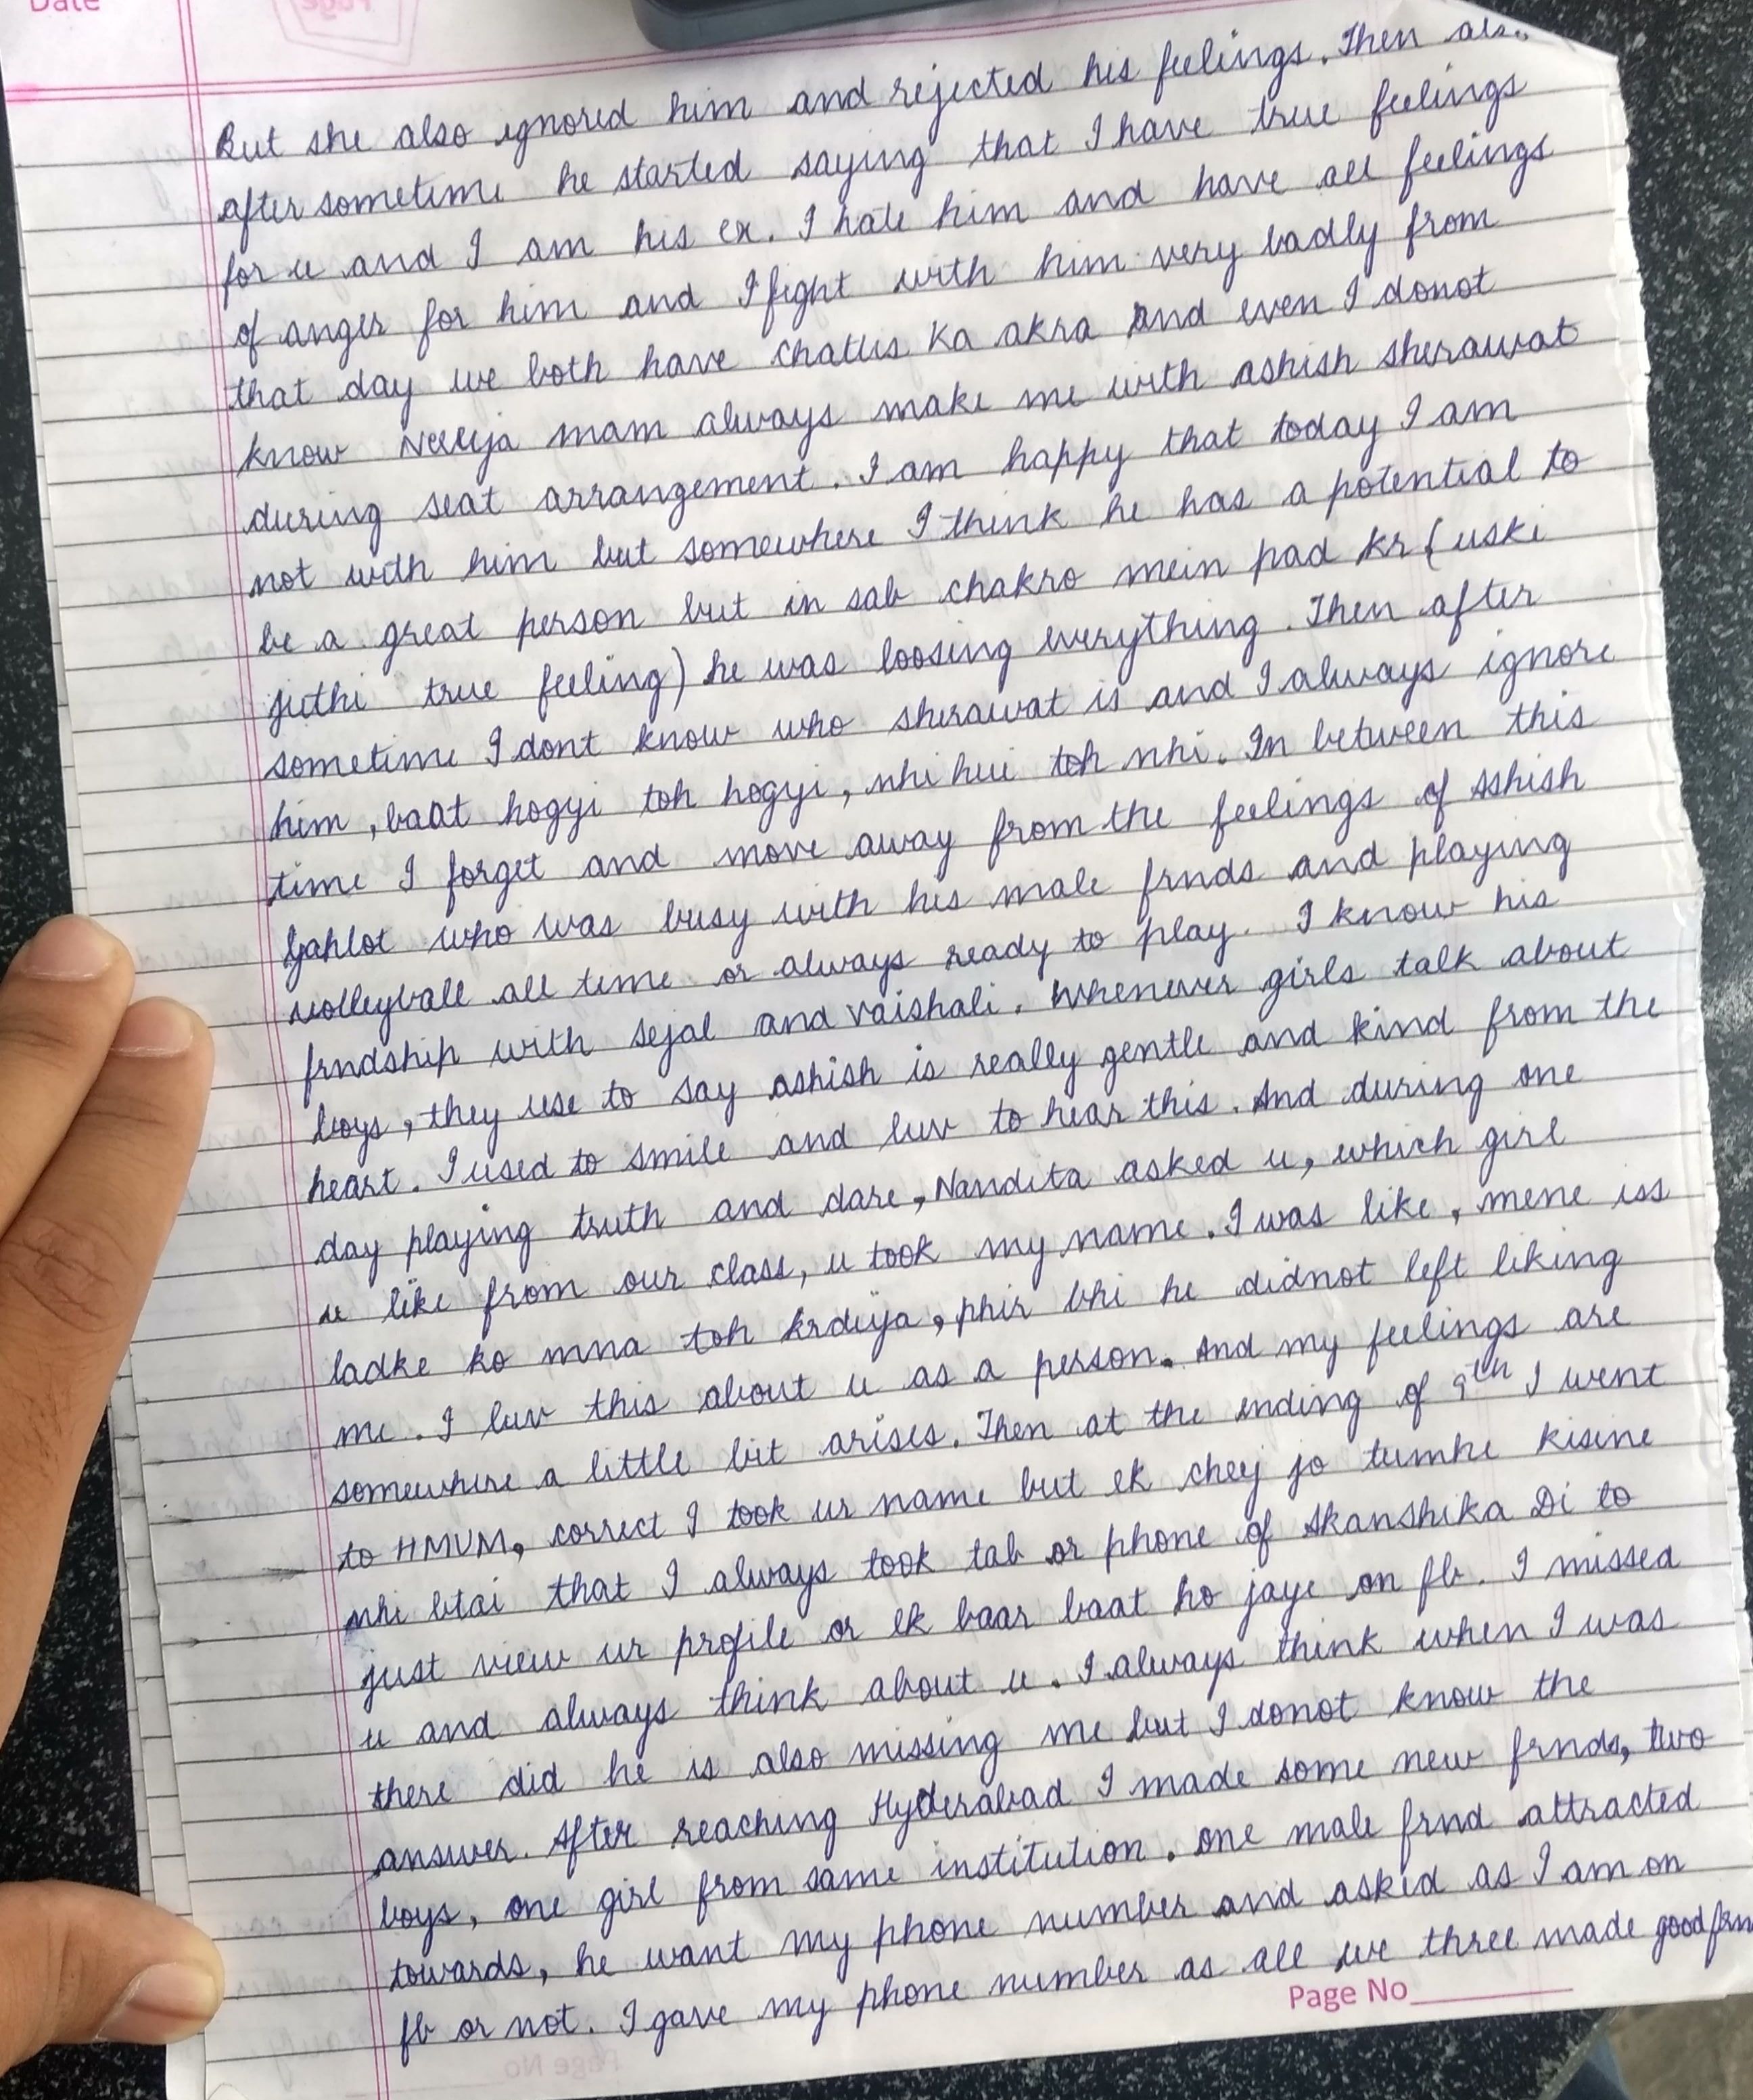 Date
But she also ignored him and rejected his feelings. Then
after sometime he started saying that I have true feelings
for u and I am his ex. I hate him and have all feelings
of anger for him and I fight with him very badly from
that day we both have chattis ka akra and even I donot
know Neerja mam always make me with ashish sherawat
during seat arrangement. I am happy that today I am
not with him but somewhere I think he has a potential to
be a great person but in sab chakro mein pad kr (uski
juthi true feeling) he was loosing everything. Then after
sometime I dont know who sherawat is and I always ignore
him, baat hogyi toh hogyi, nhi hui toh nhi. In between this
time I forget and move away from the feelings of Ashish
Gahlot who was busy with his male frnds and playing
volleyball all time or always ready to play. I know his
frndship with sejal and vaishali. Whenever girls talk about
boys, they use to say ashish is really gentle and kind from the
heart. I used to smile and luv to hear this. And during one
day playing truth and dare, Nandita asked u, which girl
u like from our class, u took my name. I was like, mene iss
ladke ko mna toh krdiya, phir bhi he didnot left liking
me. I luv this about u as a person. And my feelings are
somewhere a little bit arises. Then at the ending of 9th I went
to HMVM, correct I took ur name but ek chej jo tumhe kisine
nhi btai that I always took tab or phone of Akanshika Di to
just view ur profile or ek baar baat ho jaye on fb. I missed
u and always think about u. I always think when I was
there did he is also missing me but I donot know the
answer. After reaching Hyderabad I made some new frnds, two
boys, one girl from same institution. one male frnd attracted
towards, he want my phone number and asked as I am on
fb or not. I gave my phone number as all we three made good
Page No